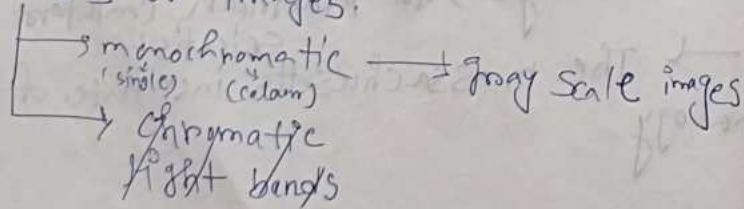 images.
monochromatic → gray scale images
(single) (colour)
chromatic
light bands